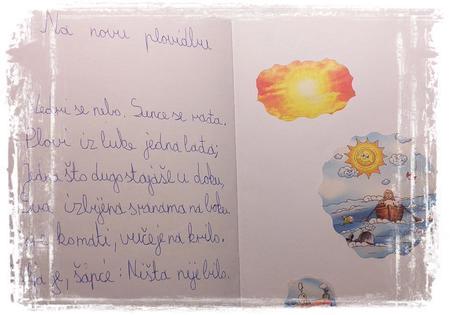 Na novu plovidbu
se nebo. Sunce se rađa.
Plovi iz luke jedna lađa;
što dugo stajaše u doku,
izbijena sranama na boku.
komati, vuče je na krilo.
je, šapće: Ništa nije bilo.